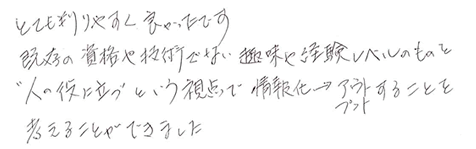 とても判りやすく良かったです
既存の資格や技術でない趣味や経験レベルのものを
"人の役に立つ"という視点で情報化→アウトプットすることを
考えることができました